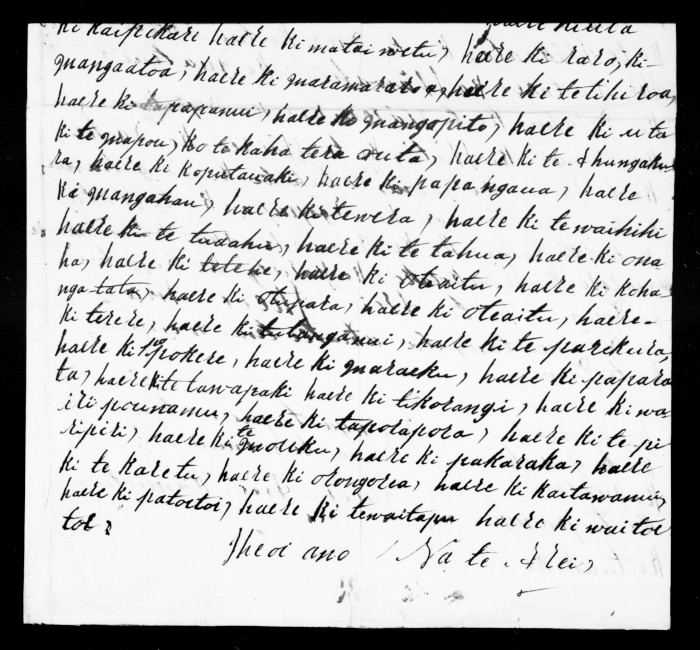 haere kiuta
ki kaipikare haere ki matai wetu, haere ki raro, ki
mangaatoa, haere ki maramarato, haere ki tetihiroa,
haere ki papanui, haere ki mangapito, haere ki uta
ki te mapou, ko te kaha tera outa, haere ki te Ahungaku
ra, haere ki koputauaki, haere ki papangaua, haere
ki mangahau, haere ki tewera, haere ki tewaihihi
haere ki te tuahu, haere ki te tahua, haere ki ona
ha, haere ki tetehe, haere ki oteaitu, haere ki koha
nga tata, haere ki otupara, haere ki oteaitu, haere
ki terere, haere ki tutanganui, haere ki te purekura,
haere ki pokere, haere ki maraeku, haere ki papara
ta, haere ki te tawapaki haere ki tikorangi, haere ki wa
iri pounamu, haere ki tapotapota, haere ki te pi
ripiri, haere ki te moteku, haere ki pakaraka, haere
ki te karetu, haere ki orongorea, haere ki kaitawamu,
haere ki patoetoi, haere ki tewaitapu haere ki waitoe
toe,
Heoi ano Na te Arei,